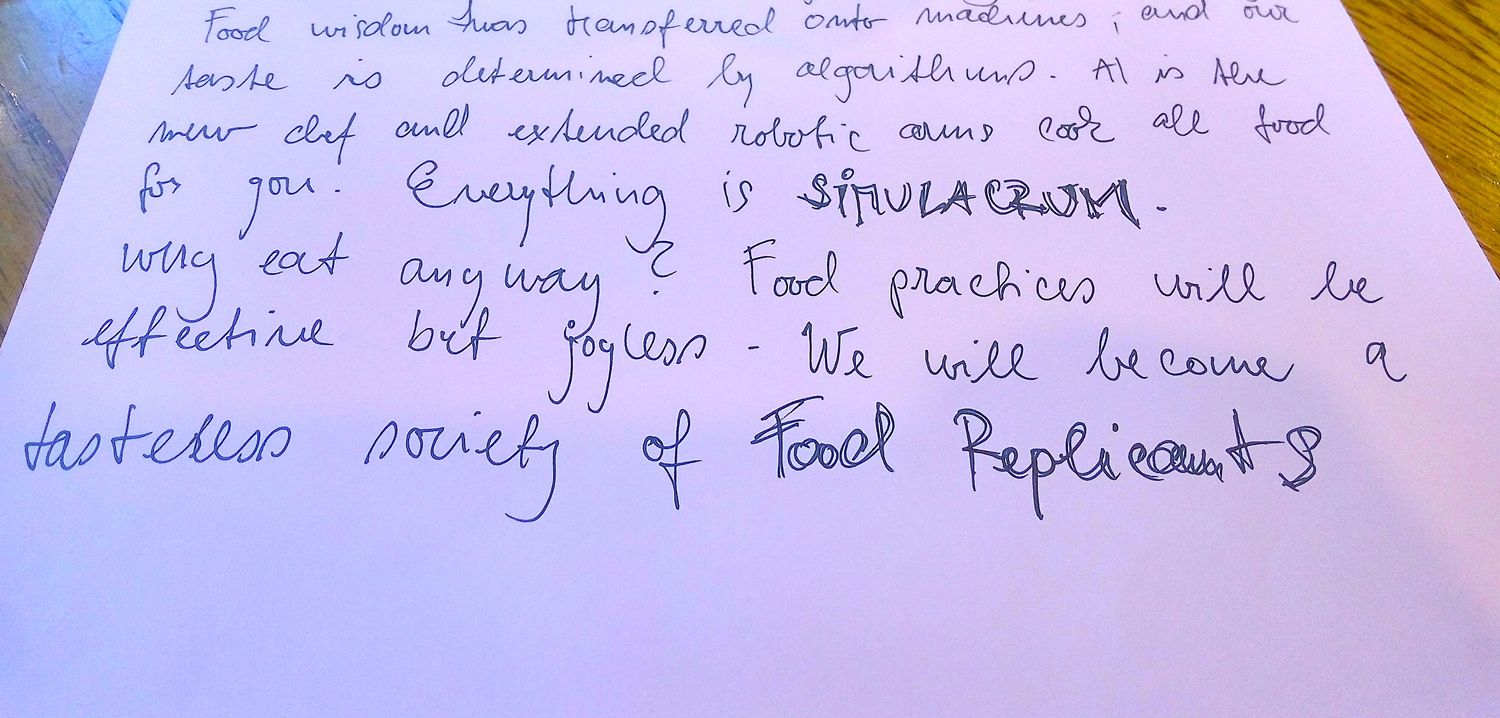 Food wisdom has transferred onto machines, and our
taste is determined by algorithms. AI is the
new chef and extended robotic arms cook all food
for you. Everything is SIMULACRUM.
Why eat anyway? Food practices will be
effective but joyless - We will become a
tasteless society of Food Replicants